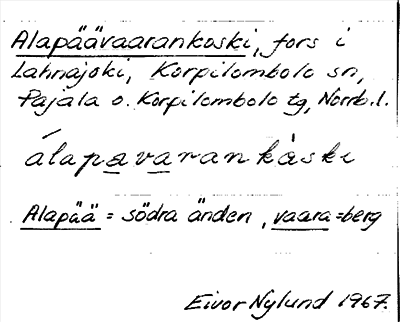 Alapäävaarankoski, fors i
Lahnajoki, Korpilombolo sn,
Pajala o. Korpilombolo tg, Norrb. l.
álapavarankåski
Alapää = södra änden, vaara = berg
Eivor Nylund 1967.